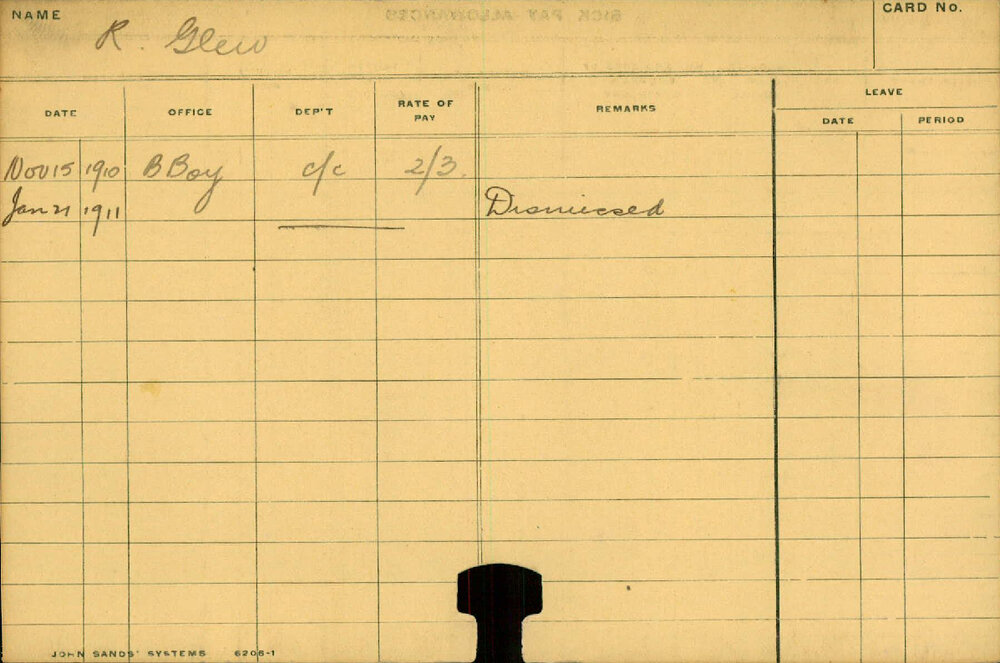 NAME R. Glew CARD No.
DATE OFFICE DEP'T RATE OF PAY REMARKS LEAVE
DATE PERIOD
Nov 15 1910 B Boy c/c 2/3.
Jan 21 1911 Dismissed
JOHN SANDS' SYSTEMS 6206-1